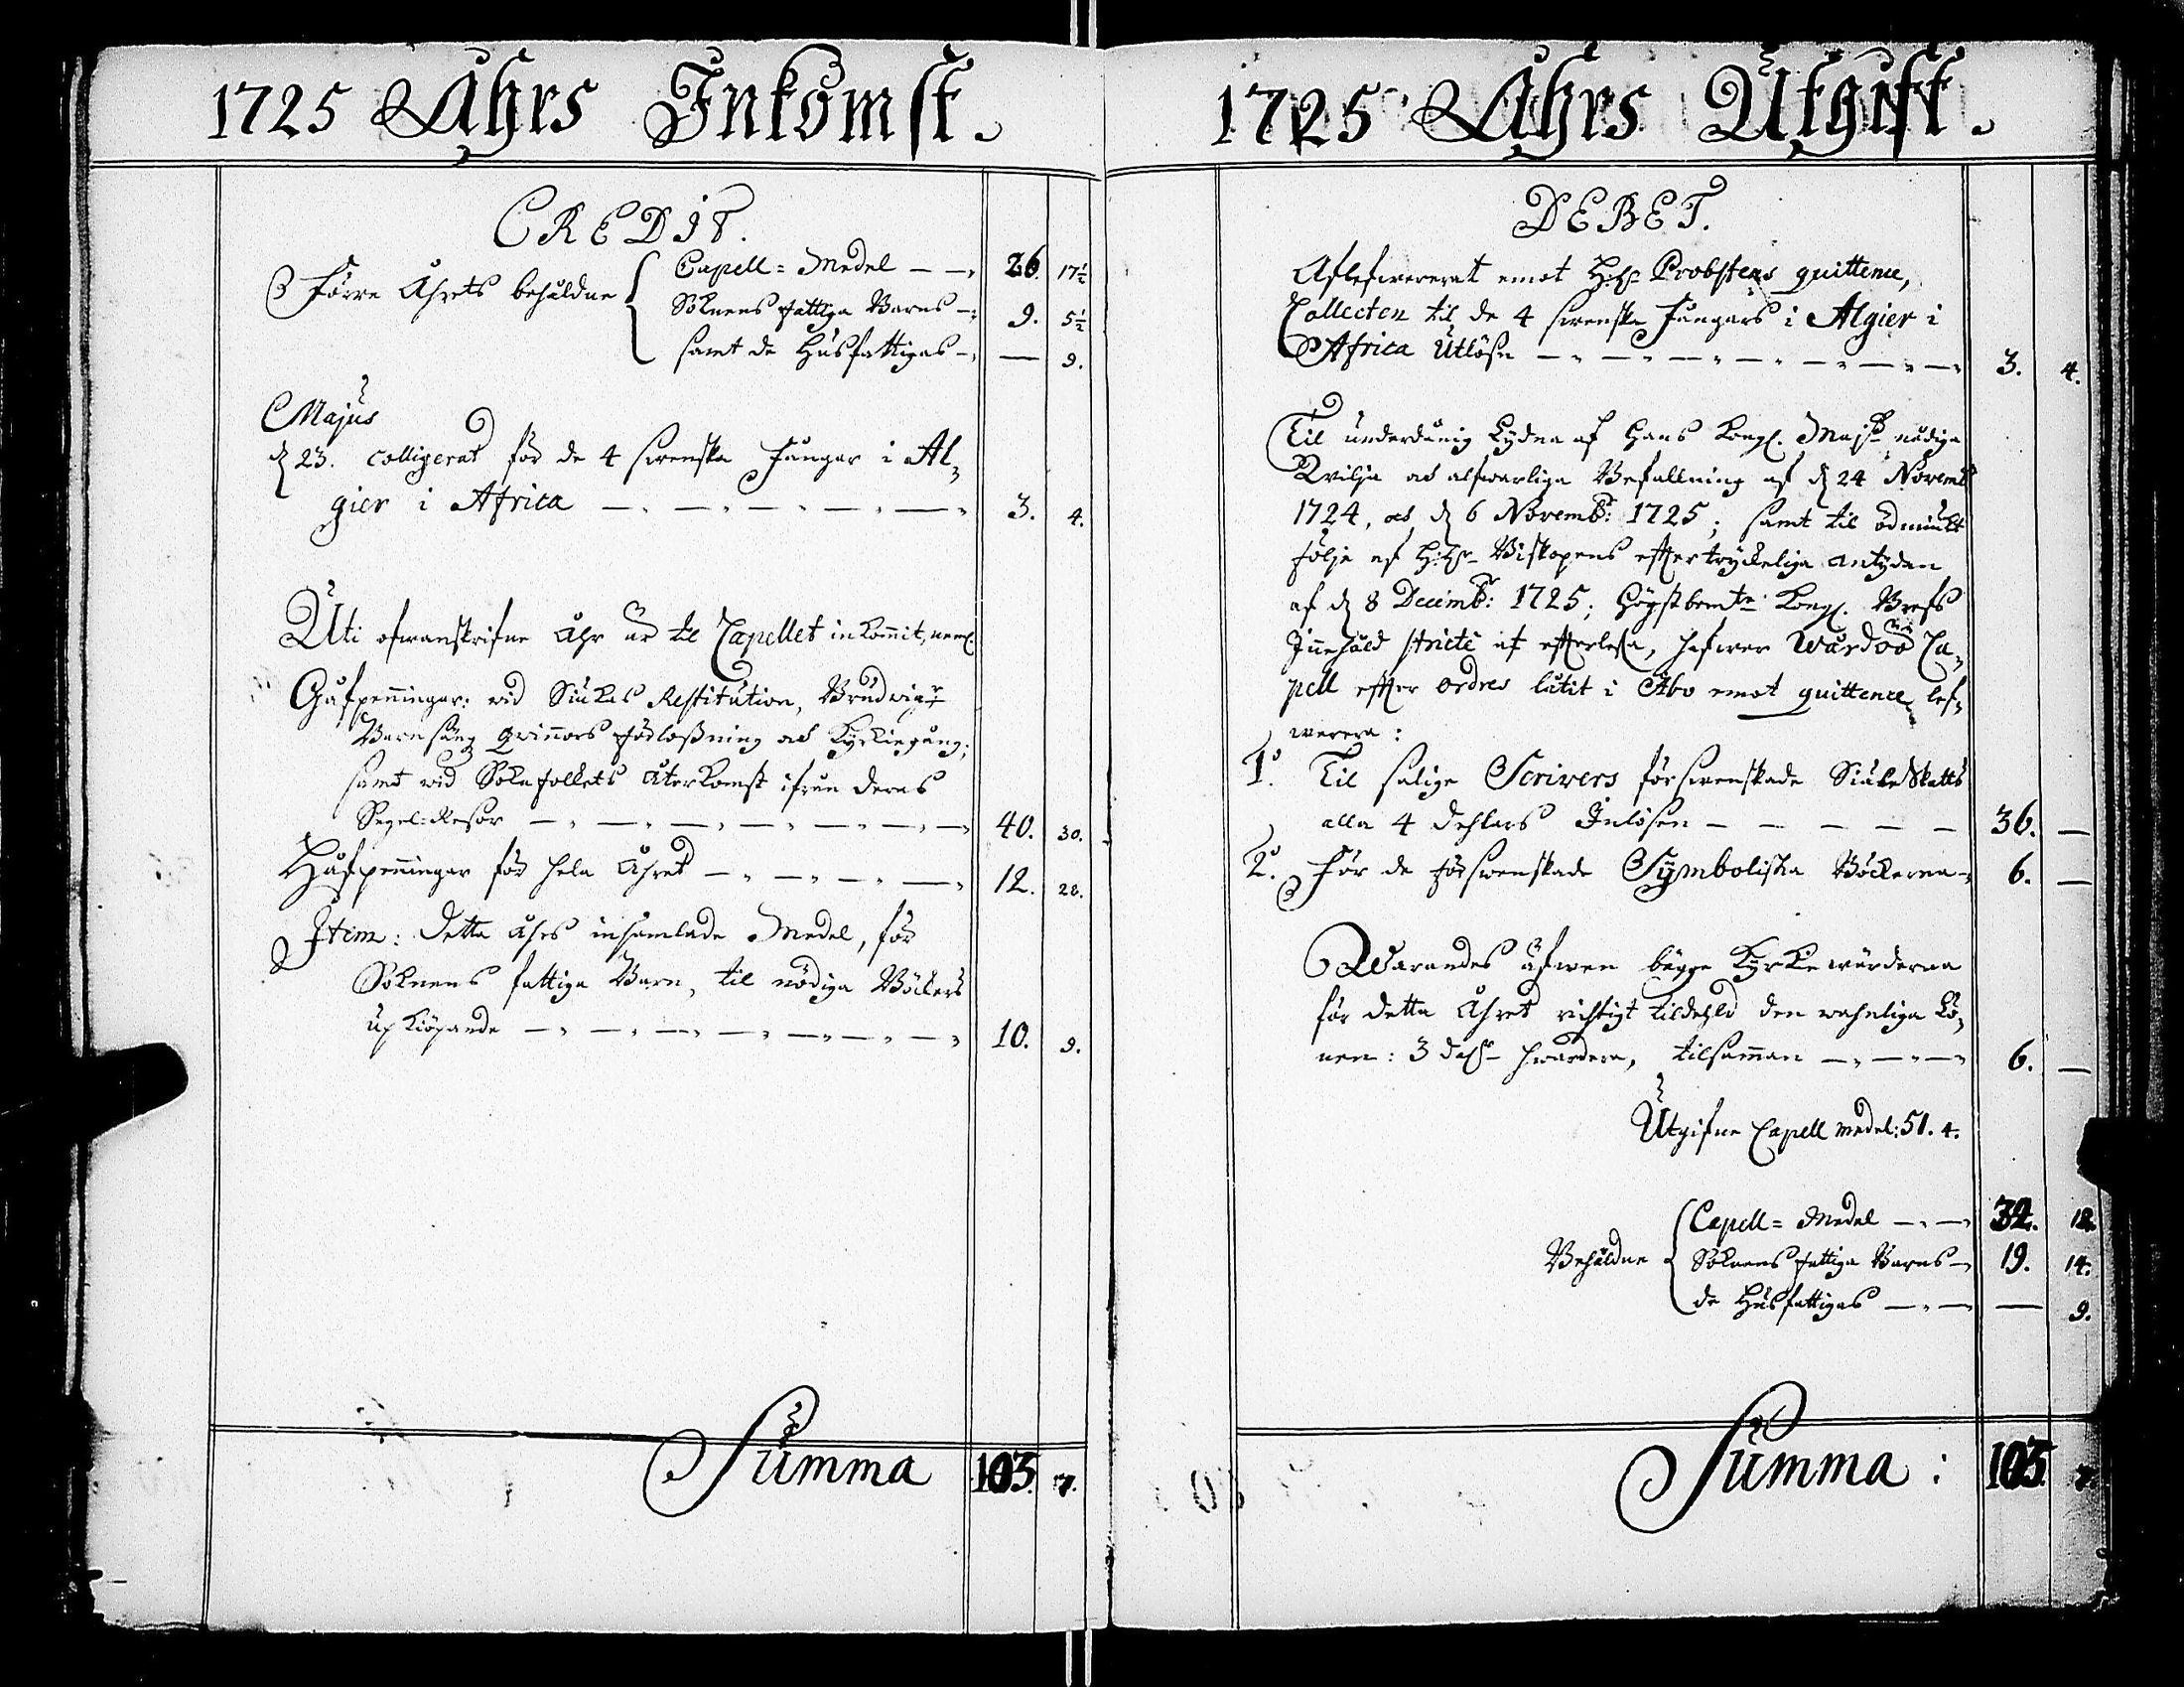 1725 Åhrs Inkomst.
CREDIT.
Förre Åhrets behåldne
Capell-Medel 26. 17½
Soknens fattiga Barns 9. 5½
samt de Husfattigas — 9.
Majus
d 23. colligerat för de 4 swenska Fångar i Al-
gier i Africa 3. 4.
Uti ofwanskrifne Åhr är til Capellet inkommit, neml.
Gåfpenningar: wid Siukas Restitution, Brudwigr
Barnsäng Qwinnors förlossning och Kyrkiegång;
samt wid Soknfolkets återkomst ifrån deras
Segel-Resor 40. 30.
Håfpenningar för hela Åhret 12. 28.
Item: detta åhrs insamlade Medel, för
Soknens fattiga Barn, til nödiga Böckers
upkiöpande 10. 9.
Summa 103. 7.
1725 Åhrs Utgift.
DEBET.
Aflefwererat emot H:H:r Probstens quittence,
Collecten til de 4 swenska Fångars i Algier i
Africa Utlösn 3. 4.
Til underdånig Lydna af Hans Kongl. Maj:tz nådiga
Wilja och alfwarliga Befallning af d 24 Novemb
1724, och d 6 Novemb:r 1725; samt til ödmiukt
följe af H:H:r Biskopens eftertryckeliga antydan
af d 8 Decemb:r 1725; högstbemte Kongl. Brefs
Innehåld stricte at efterlefwa, hafwer Wårdöö Ca-
pell efter ordres låtit i Åbo emot quittence lef-
werera:
1:o Til salige Scrivers förswenskade Siäle Skatts
alla 4 dehlars Inlösen 36. —
2:o För de förswenskade Symboliska Böckerna 6. —
Warandes äfwen bägge Kyrkiewärderna
för detta Åhret richtigt tildehld den wahnliga Lö-
nen: 3 dahlr hwardera, tilsamman 6. —
Utgifne Capell medel: 51. 4.
Behåldne
Capell-Medel 32. 12.
Soknens fattiga Barns 19. 14.
de Husfattigas — 9.
Summa: 103. 7.